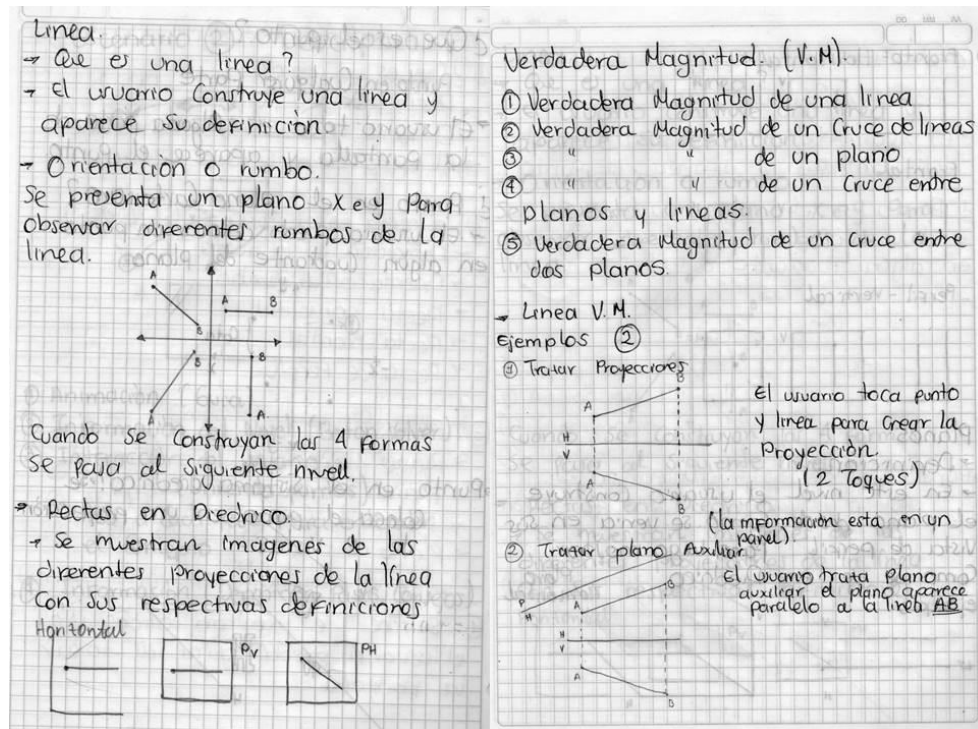 Linea.
→ Que es una linea?
→ El usuario Construye una linea y
aparece su definición.
→ Orientación o rumbo.
Se presenta un plano X e y Para
observar diferentes rumbos de la
linea.
A
A B
B
B B
A A
Cuando se construyan las 4 formas
se pasa al siguiente nivel.
→ Rectas en Diedrico.
→ Se muestran imagenes de las
diferentes proyecciones de la línea
con sus respectivas definiciones
Horizontal
PV
PH
Verdadera Magnitud. (V.M).
① Verdadera Magnitud de una linea
② Verdadera Magnitud de un Cruce de lineas
③ " " de un plano
④ " " de un Cruce entre
planos y lineas.
⑤ Verdadera Magnitud de un Cruce entre
dos planos.
→ Linea V.M.
Ejemplos ②
① Trazar Proyecciones
B
A
H
V
A
B
El usuario toca punto
y linea para Crear la
Proyección.
(2 Toques)
(la información esta en un
panel).
② Trazar plano Auxiliar
El usuario traza plano
auxiliar, el plano aparece
paralelo a la linea AB
P
H
A
B
H
V
A
B